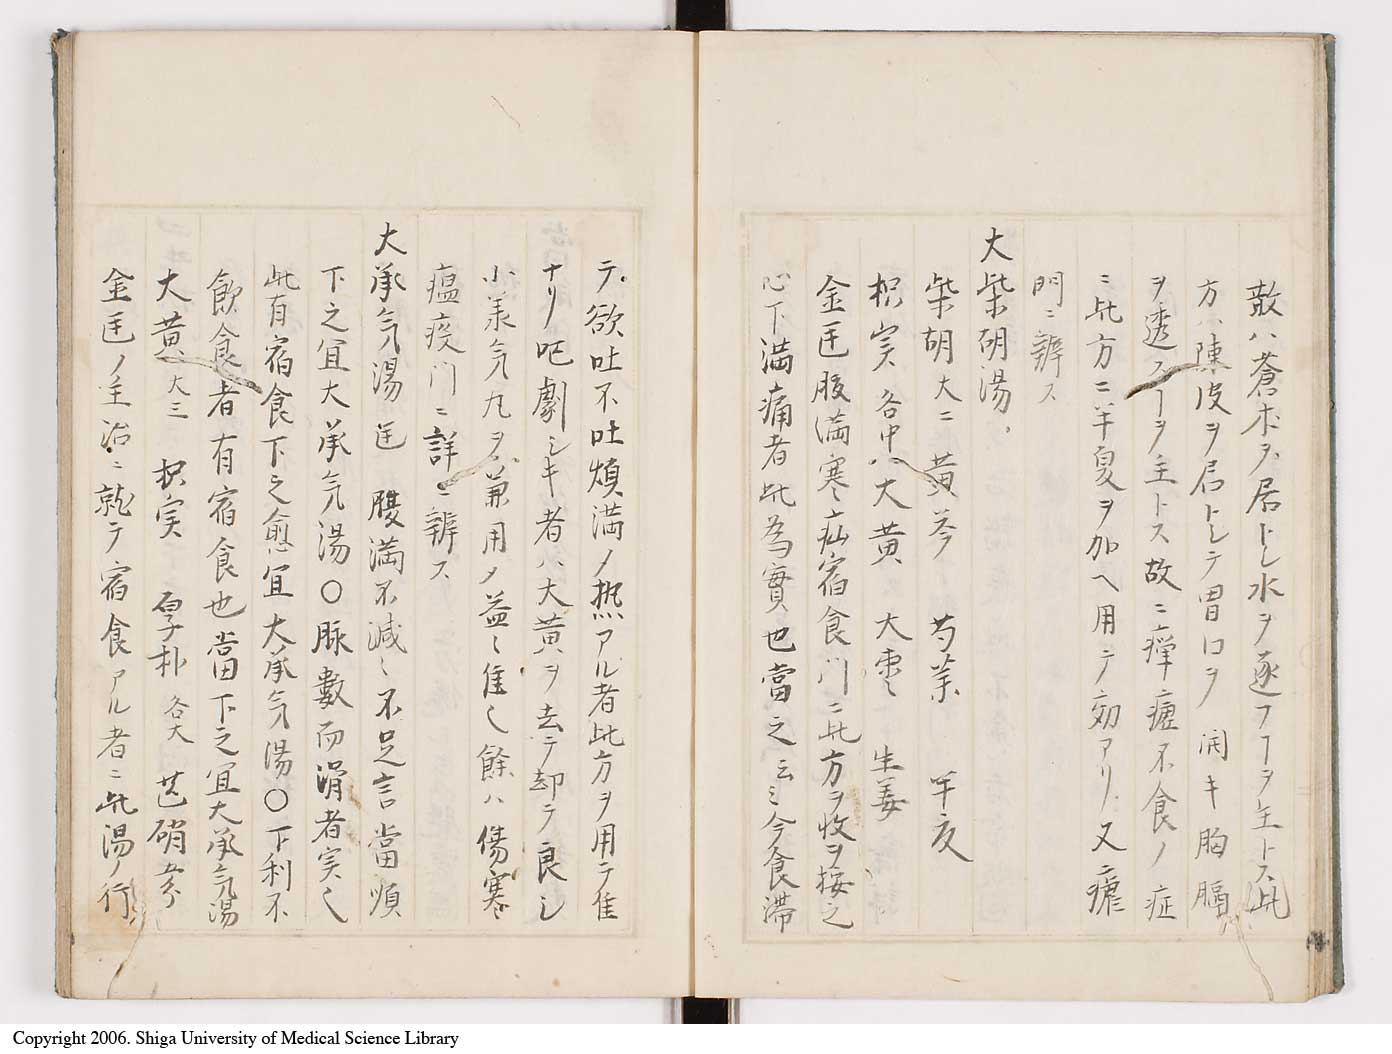 散ハ蒼朮ヲ君トシ水ヲ逐フヿヲ主トス此
方ハ陳皮ヲ君トシテ胃口ヲ開キ胸膈
ヲ透スヿヲ主トス故ニ癉瘧不食ノ症
ニ此方ニ半夏ヲ加ヘ用テ効アリ又瘧
門ニ辨ス
大柴胡湯
柴胡大ニ黄芩 芍薬 半夏
枳実各中ハ大黄 大棗 生姜
金匡腹満寒疝宿食門ニ此方ヲ收ヲ按之
心下満痛者此為實也當之云ミ今食滞
テ欲吐不吐煩満ノ熱アル者此方ヲ用テ佳
ナリ吐劇シキ者ハ大黄ヲ去テ却テ良シ
小承気丸ヲ兼用メ益ミ佳シ餘ハ傷寒
瘟疫门ニ詳ニ辨ス
大承気湯匡 腹満不減ミ不足言當須
下之宜大承気湯○脉數而滑者実也
此有宿食下之愈宜大承気湯○下利不
飲食者有宿食也當下之宜大承気湯
大黄大三 枳実 厚朴各大 芒硝
金匡ノ主治ニ就テ宿食アル者ニ此湯ノ行
Copyright 2006. Shiga University of Medical Science Library